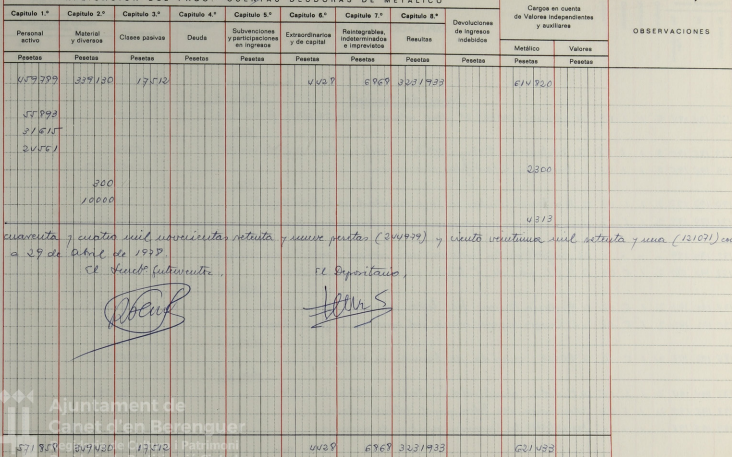 CUENTAS DEUDORAS DE METÁLICO
Capítulo 1.º Capítulo 2.º Capítulo 3.º Capítulo 4.º Capítulo 5.º Capítulo 6.º Capítulo 7.º Capítulo 8.º Devoluciones de ingresos indebidos Cargos en cuenta de Valores independientes y auxiliares OBSERVACIONES
Personal activo Material y diversos Clases pasivas Deuda Subvenciones y participaciones en ingresos Extraordinarios y de capital Reintegrables, indeterminados e imprevistos Resultas Metálico Valores
Pesetas Pesetas Pesetas Pesetas Pesetas Pesetas Pesetas Pesetas Pesetas Pesetas Pesetas
459789 339130 17512 4428 6868 3231933 614820
55893
31615
24561
2300
300
10000
4313
cuarenta y cuatro mil novecientas setenta y nueve pesetas (244979) y ciento veintiuna mil setenta y una (121071)
a 29 de abril de 1978.
El Interventor. El Depositario,
Ajuntament de
Canet d'en Berenguer
571858 349430 17512 4428 6868 3231933 621433